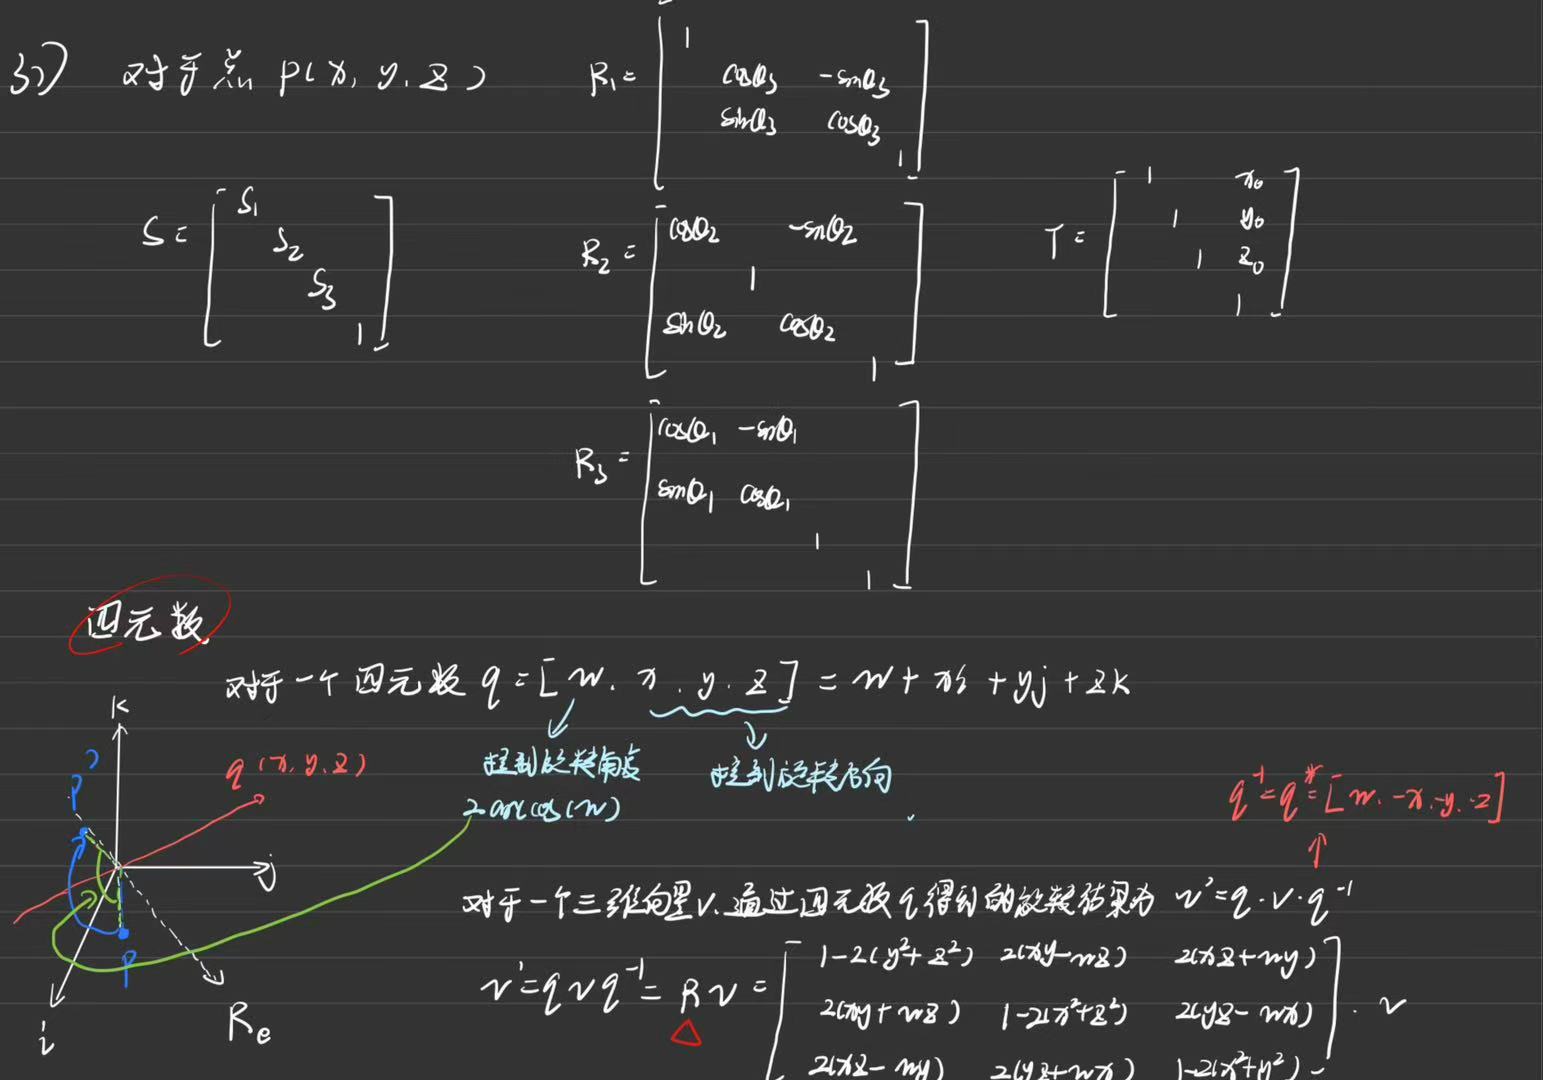 3) 对于点 P(x, y, z)
R₁ = [ 1
cosθ₃ -sinθ₃
sinθ₃ cosθ₃
1 ]
S = [ S₁
S₂
S₃
1 ]
R₂ = [ cosθ₂ -sinθ₂
1
sinθ₂ cosθ₂
1 ]
T = [ 1 x₀
1 y₀
1 z₀
1 ]
R₃ = [ cosθ₁ -sinθ₁
sinθ₁ cosθ₁
1
1 ]
四元数
对于一个四元数 q = [w, x, y, z] = w + xi + yj + zk
控制旋转角度
2arccos(w)
控制旋转方向
q⁻¹ = q* = [w, -x, -y, -z]
k
q (x, y, z)
P'
j
P
i
Re
对于一个三维向量v, 通过四元数q得到的旋转结果为 v' = q · v · q⁻¹
v' = q v q⁻¹ = R v = [ 1-2(y²+z²) 2(xy-wz) 2(xz+wy)
2(xy+wz) 1-2(x²+z²) 2(yz-wx)
2(xz-wy) 2(yz+wx) 1-2(x²+y²) ] · v